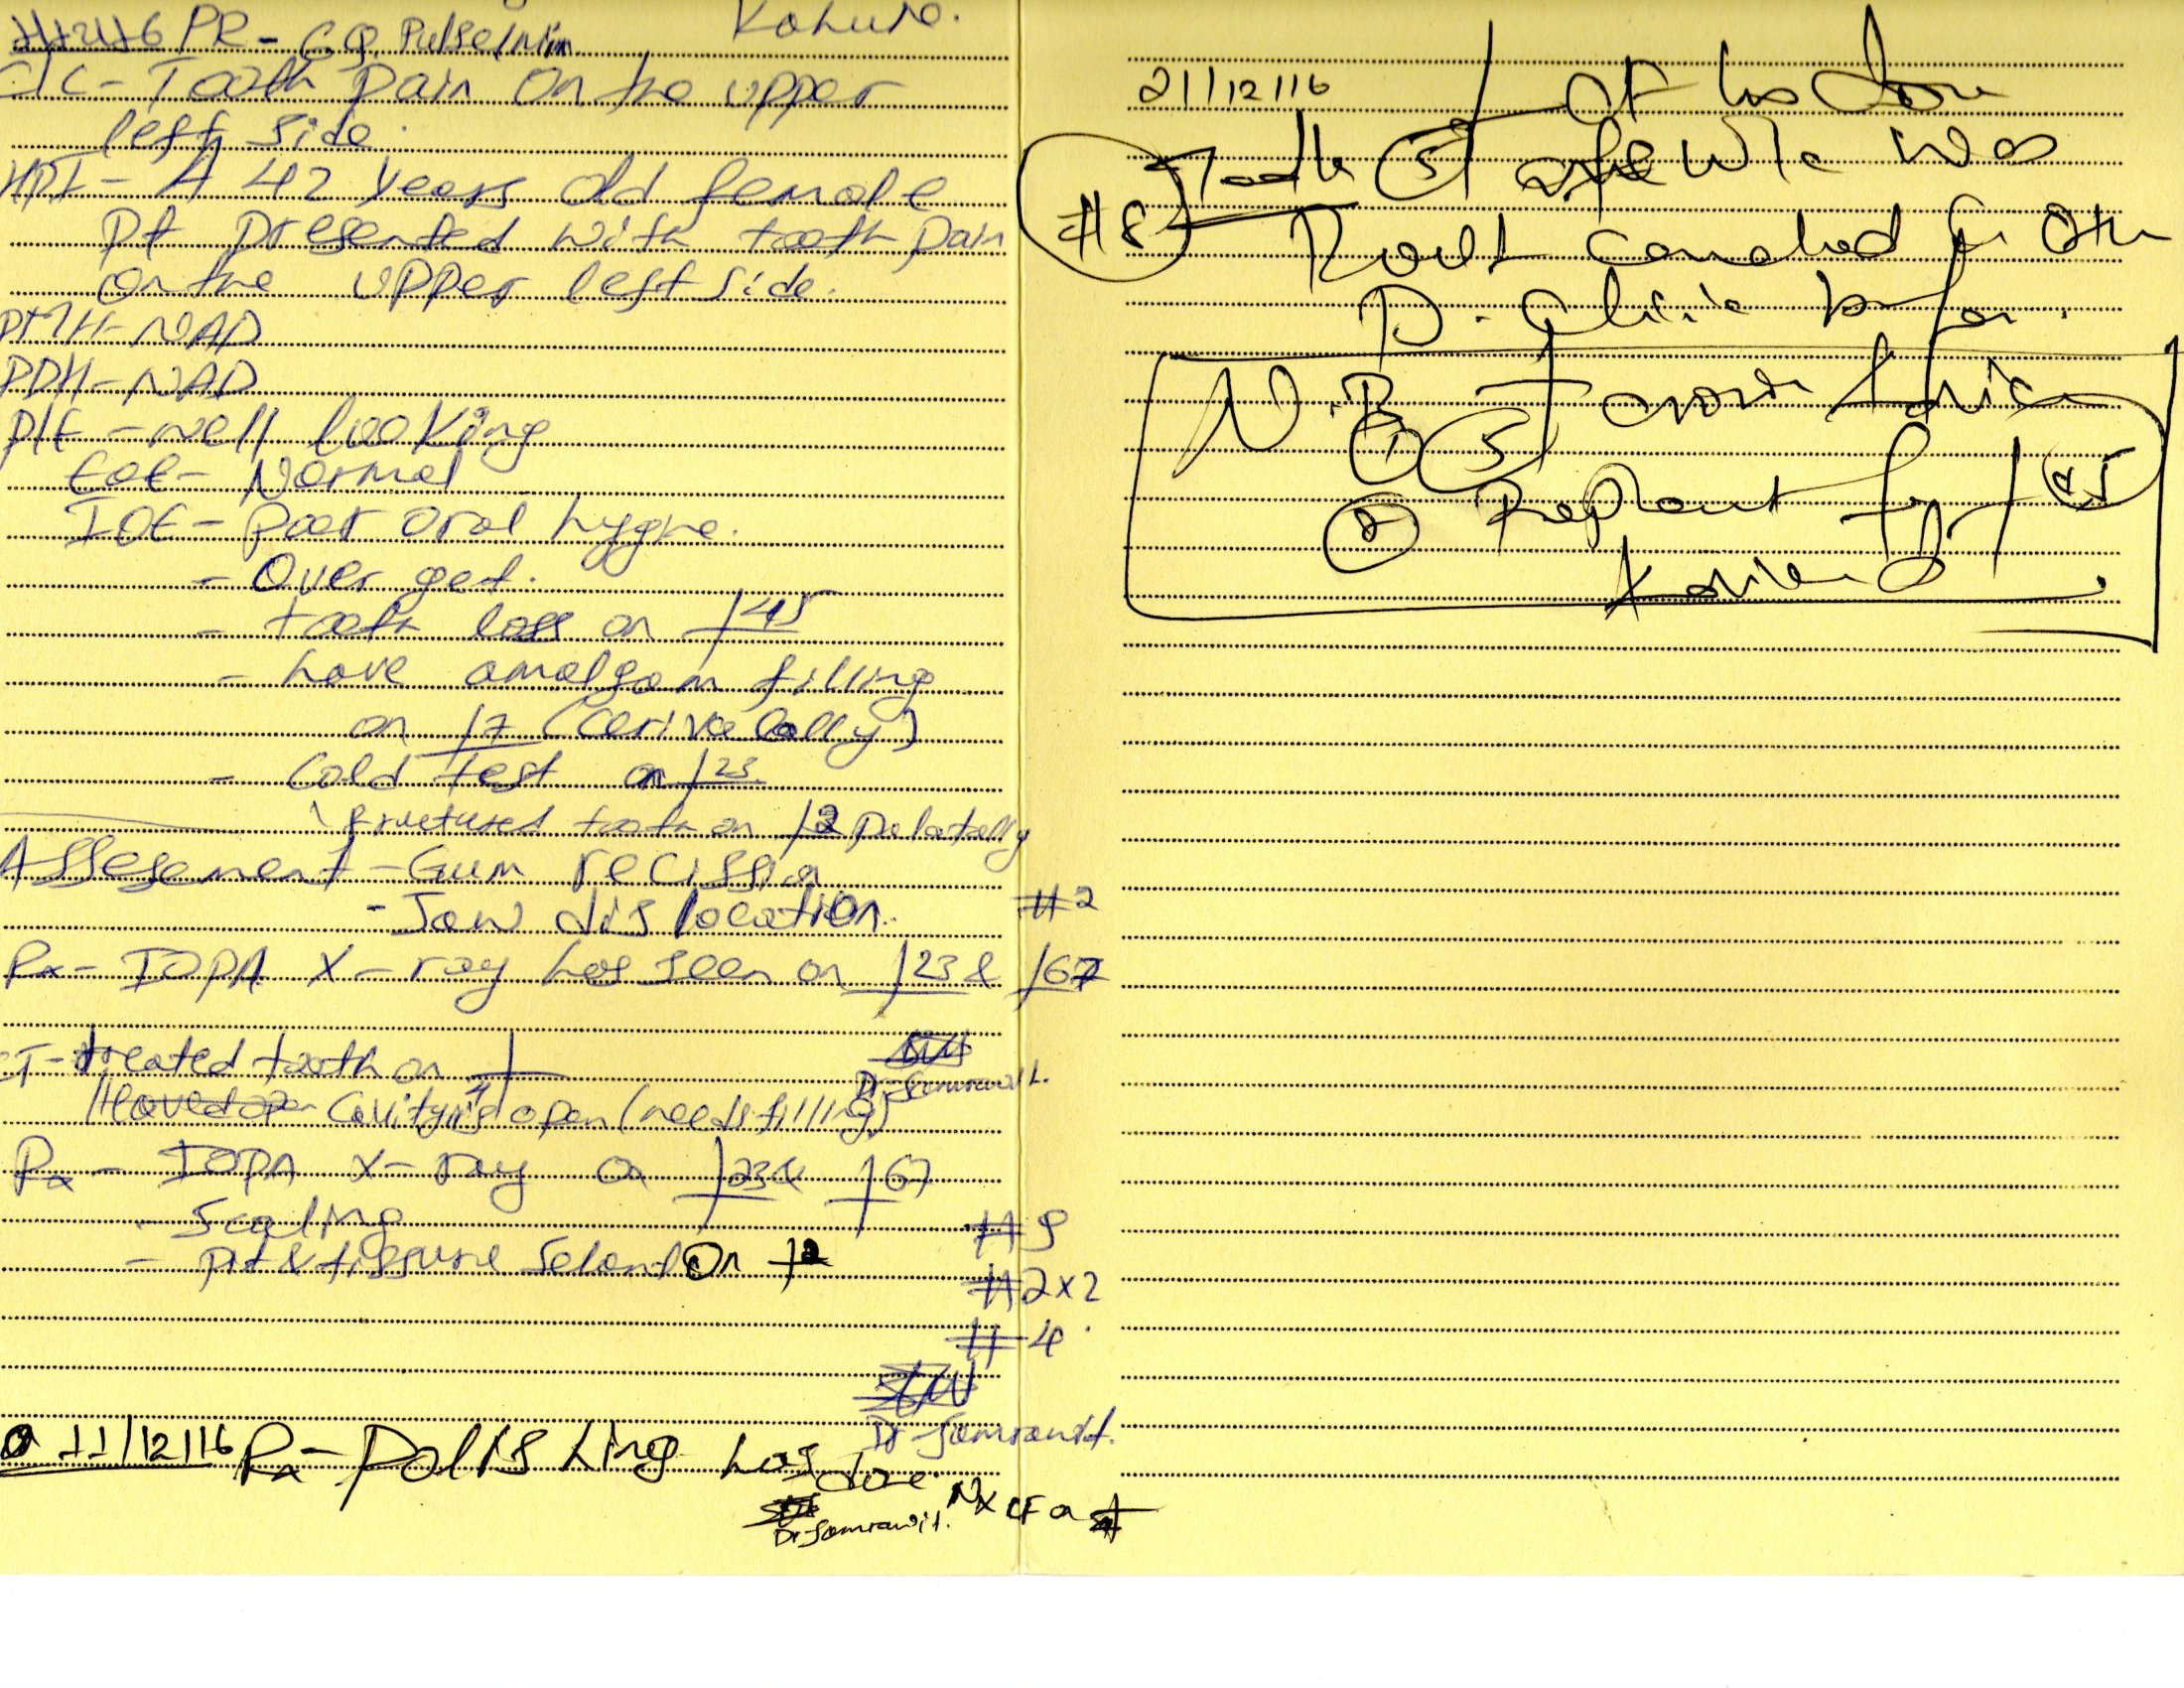 PR - 69 Pulse/min
C/C - Tooth pain on the upper
left side.
HPI - A 42 years old female
pt presented with tooth pain
on the upper left side.
PMH - NAD
PDH - NAD
P/E - well looking
EOE - Normal
IOE - poor oral hygne.
- Over get.
- tooth loss on 45
- have amalgam filling
on 7 (cerivically)
- Cold test on 23
fructured tooth on 2 palatally
Assesement - Gum recission
- Jaw dislocation.
#2
Rx - IOPA X-ray has seen on 23 & 67
treated tooth on
Cavity is open (needs filling)
Dr Samrawit.
Rx - IOPA X-ray on 23 & 67
- Scaling
#9
- pit & fissure selant on 2
#2x2
#4
Dr Samrawit.
11/12/16 Rx - Polishing has done
Dr Samrawit. Nx CF on
21/12/16 CF has done
#8 Tooth 5 while was
Root canaled in other
D. clinic before.
N.B
① 5 crown
② Replant for 45